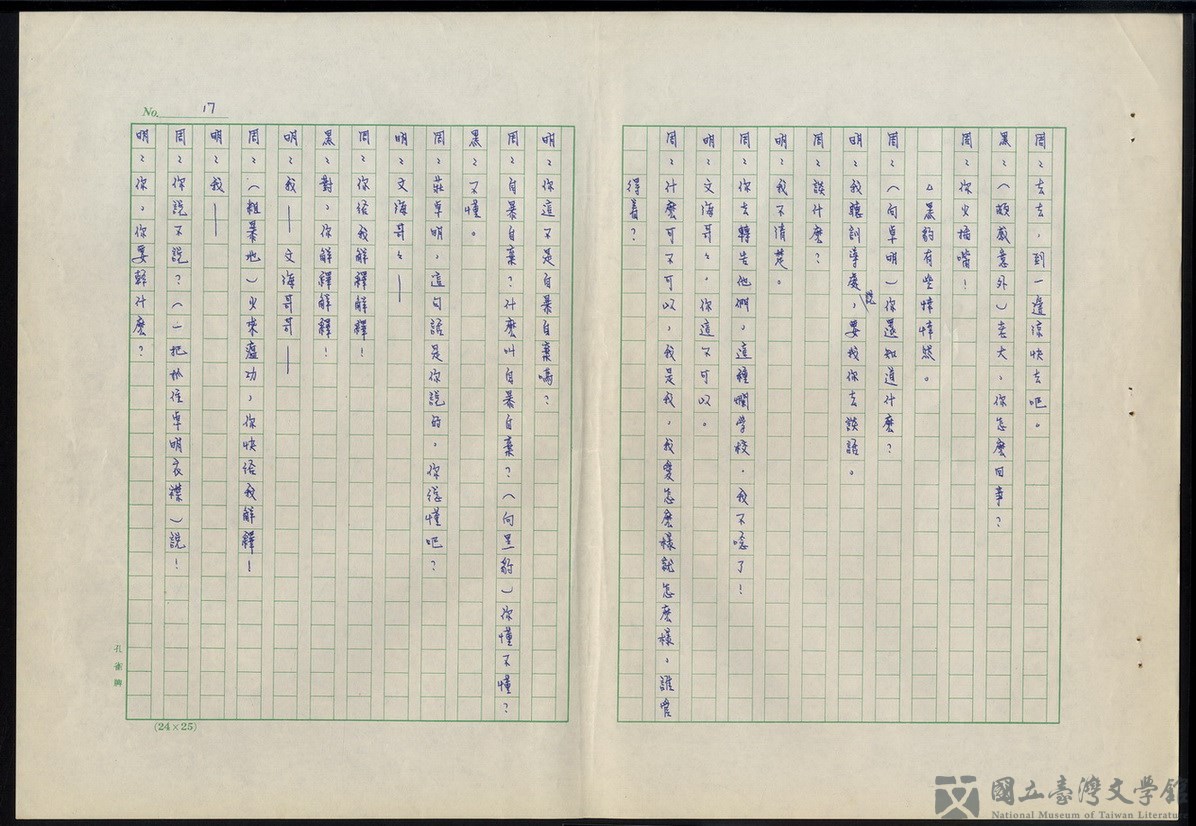 周：去去，到一邊涼快去吧。
黑：（頗感意外）老大，你怎麼回事？
周：你少插嘴！
△黑豹有些悻悻然。
周：（向卓明）你還知道什麼？
明：我聽訓導處說，要我你去談話。
周：談什麼？
明：我不清楚。
周：你去轉告他們，這種爛學校，我不唸了！
明：文海哥哥，你這不可以。
周：什麼可不可以，我是我，我愛怎麼樣就怎麼樣，誰管
得着？
No. 17
明：你這不是自暴自棄嗎？
周：自暴自棄？什麼叫自暴自棄？（向黑豹）你懂不懂？
黑：不懂。
周：莊卓明，這句話是你說的，你總懂吧？
明：文海哥哥——
周：你給我解釋解釋！
黑：對，你解釋解釋！
明：我——文海哥哥——
周：（粗暴地）少來這功，你快給我解釋！
明：我——
周：你說不說？（一把抓住卓明衣襟）說！
明：你，你要幹什麼？
孔雀牌
(24×25)
國立臺灣文學館
National Museum of Taiwan Literature